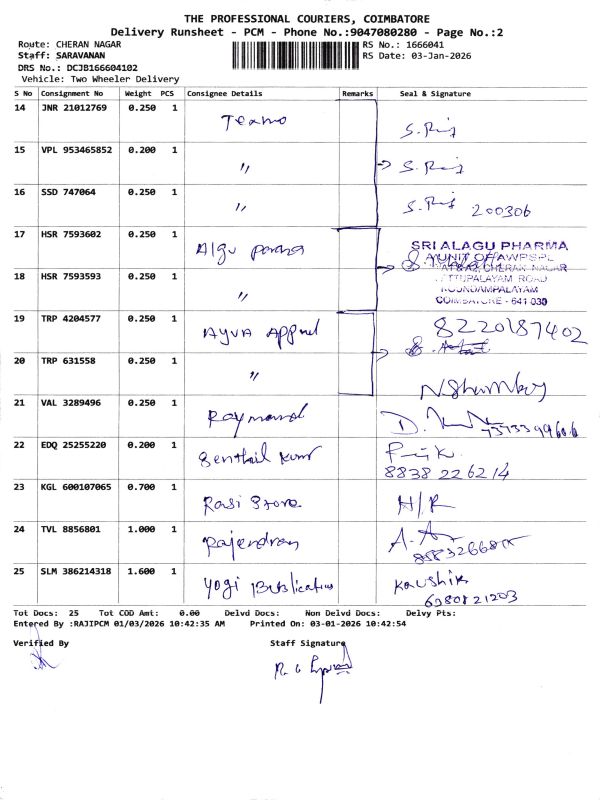 THE PROFESSIONAL COURIERS, COIMBATORE
Delivery Runsheet - PCM - Phone No.:9047080280 - Page No.:2
Route: CHERAN NAGAR
RS No.: 1666041
Staff: SARAVANAN
RS Date: 03-Jan-2026
DRS No.: DCJB166604102
Vehicle: Two Wheeler Delivery
S No Consignment No Weight PCS Consignee Details Remarks Seal & Signature
14 JNR 21012769 0.250 1
15 VPL 953465852 0.200 1 "
16 SSD 747064 0.250 1 " 200306
17 HSR 7593602 0.250 1 Algu
SRI ALAGU PHARMA
A UNIT OF AWPSPL
CHERAN NAGAR
ROAD
KOUNDAMPALAYAM
COIMBATORE - 641 030
18 HSR 7593593 0.250 1 "
19 TRP 4204577 0.250 1 8220187402
20 TRP 631558 0.250 1 "
21 VAL 3289496 0.250 1 Raymand
22 EDQ 25255220 0.200 1 Senthil Kumar
8838 226214
23 KGL 600107065 0.700 1 Rasi Store H/R
24 TVL 8856801 1.000 1 Rajendran
25 SLM 386214318 1.600 1 Yogi Publication Kaushik
6380821203
Tot Docs: 25 Tot COD Amt: 0.00 Delvd Docs: Non Delvd Docs: Delvy Pts:
Entered By :RAJIPCM 01/03/2026 10:42:35 AM Printed On: 03-01-2026 10:42:54
Verified By Staff Signature